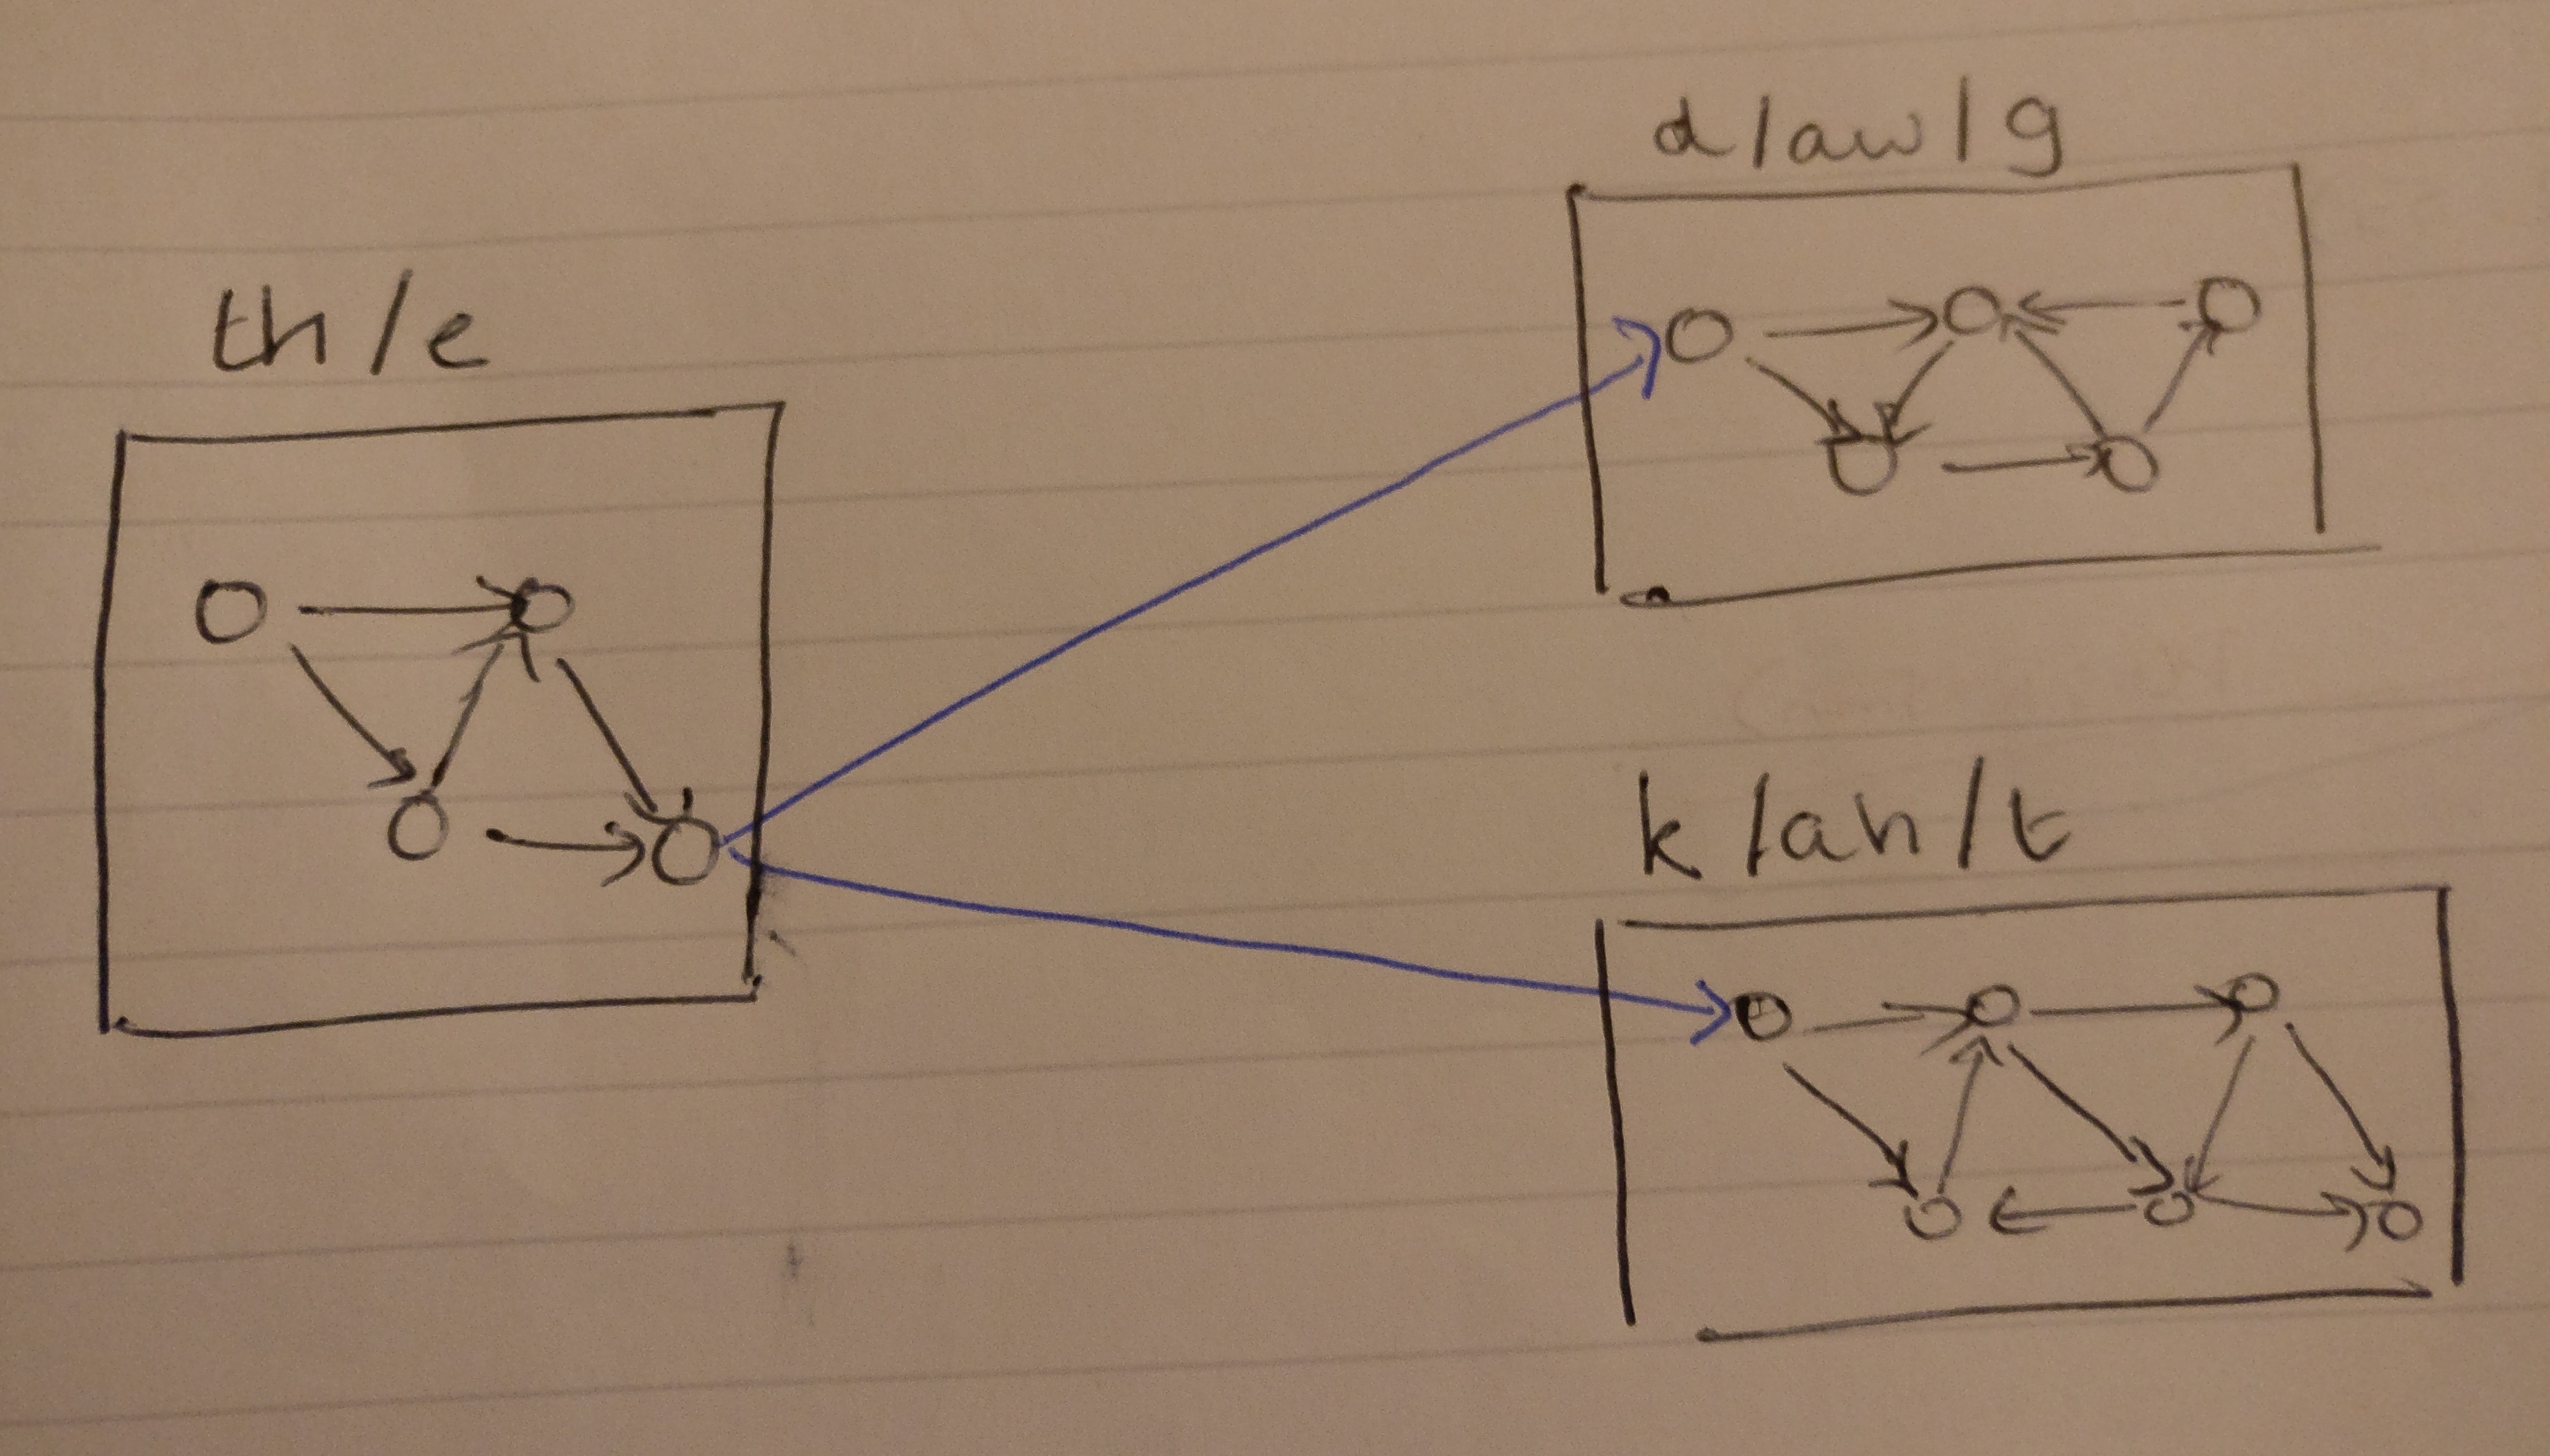 th/e
d/aw/g
k/ah/t